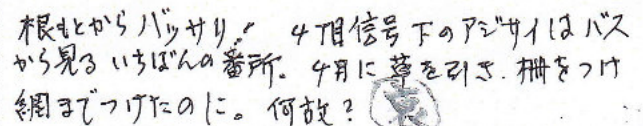 根もとからバッサリ! 4丁目信号下のアジサイはバス
から見るいちばんの番所。4月に草を引き、柵をつけ
網までつけたのに。何故?